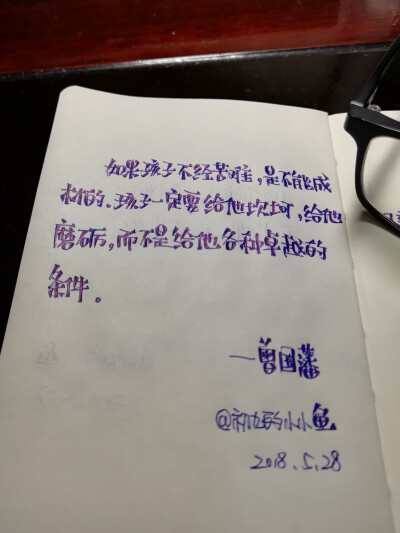 如果孩子不经苦难,是不能成
材的.孩子一定要给他坎坷,给他
磨砺,而不是给他各种卓越的
条件。
—曾国藩
小小鱼
2018.5.28